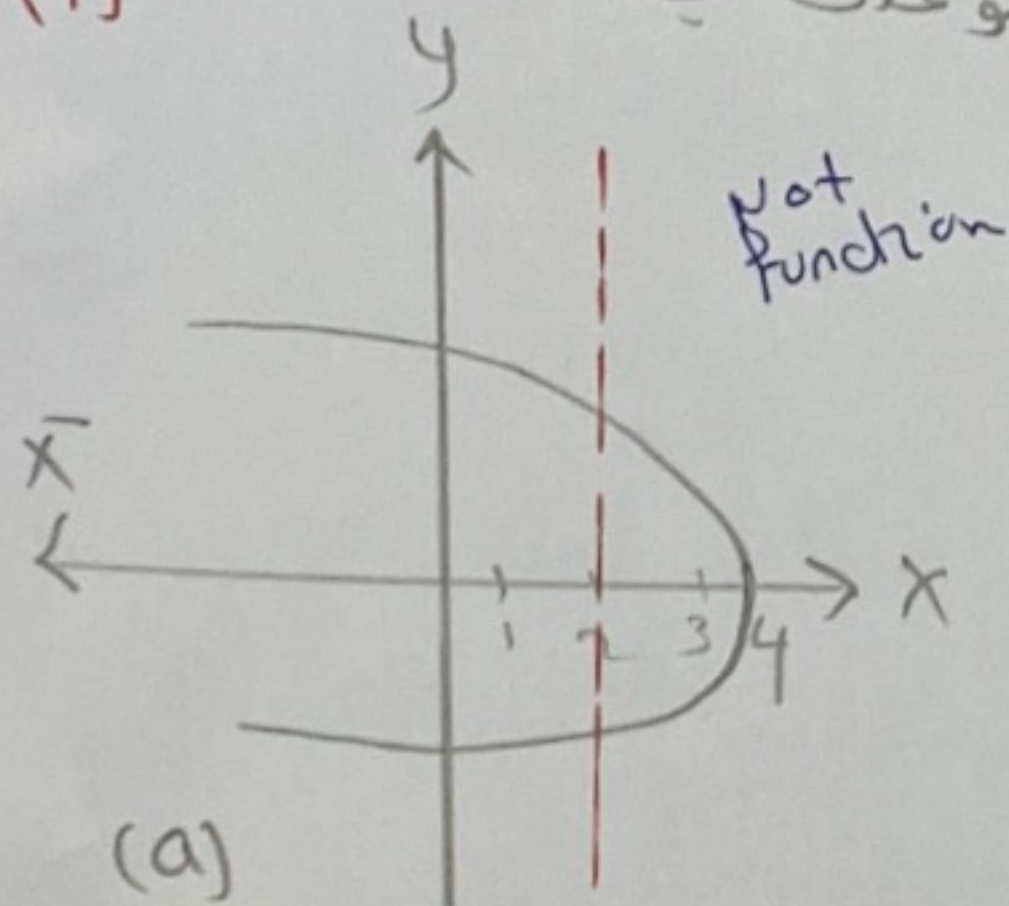 y
Not
function
x̄
x
1 2 3 4
(a)